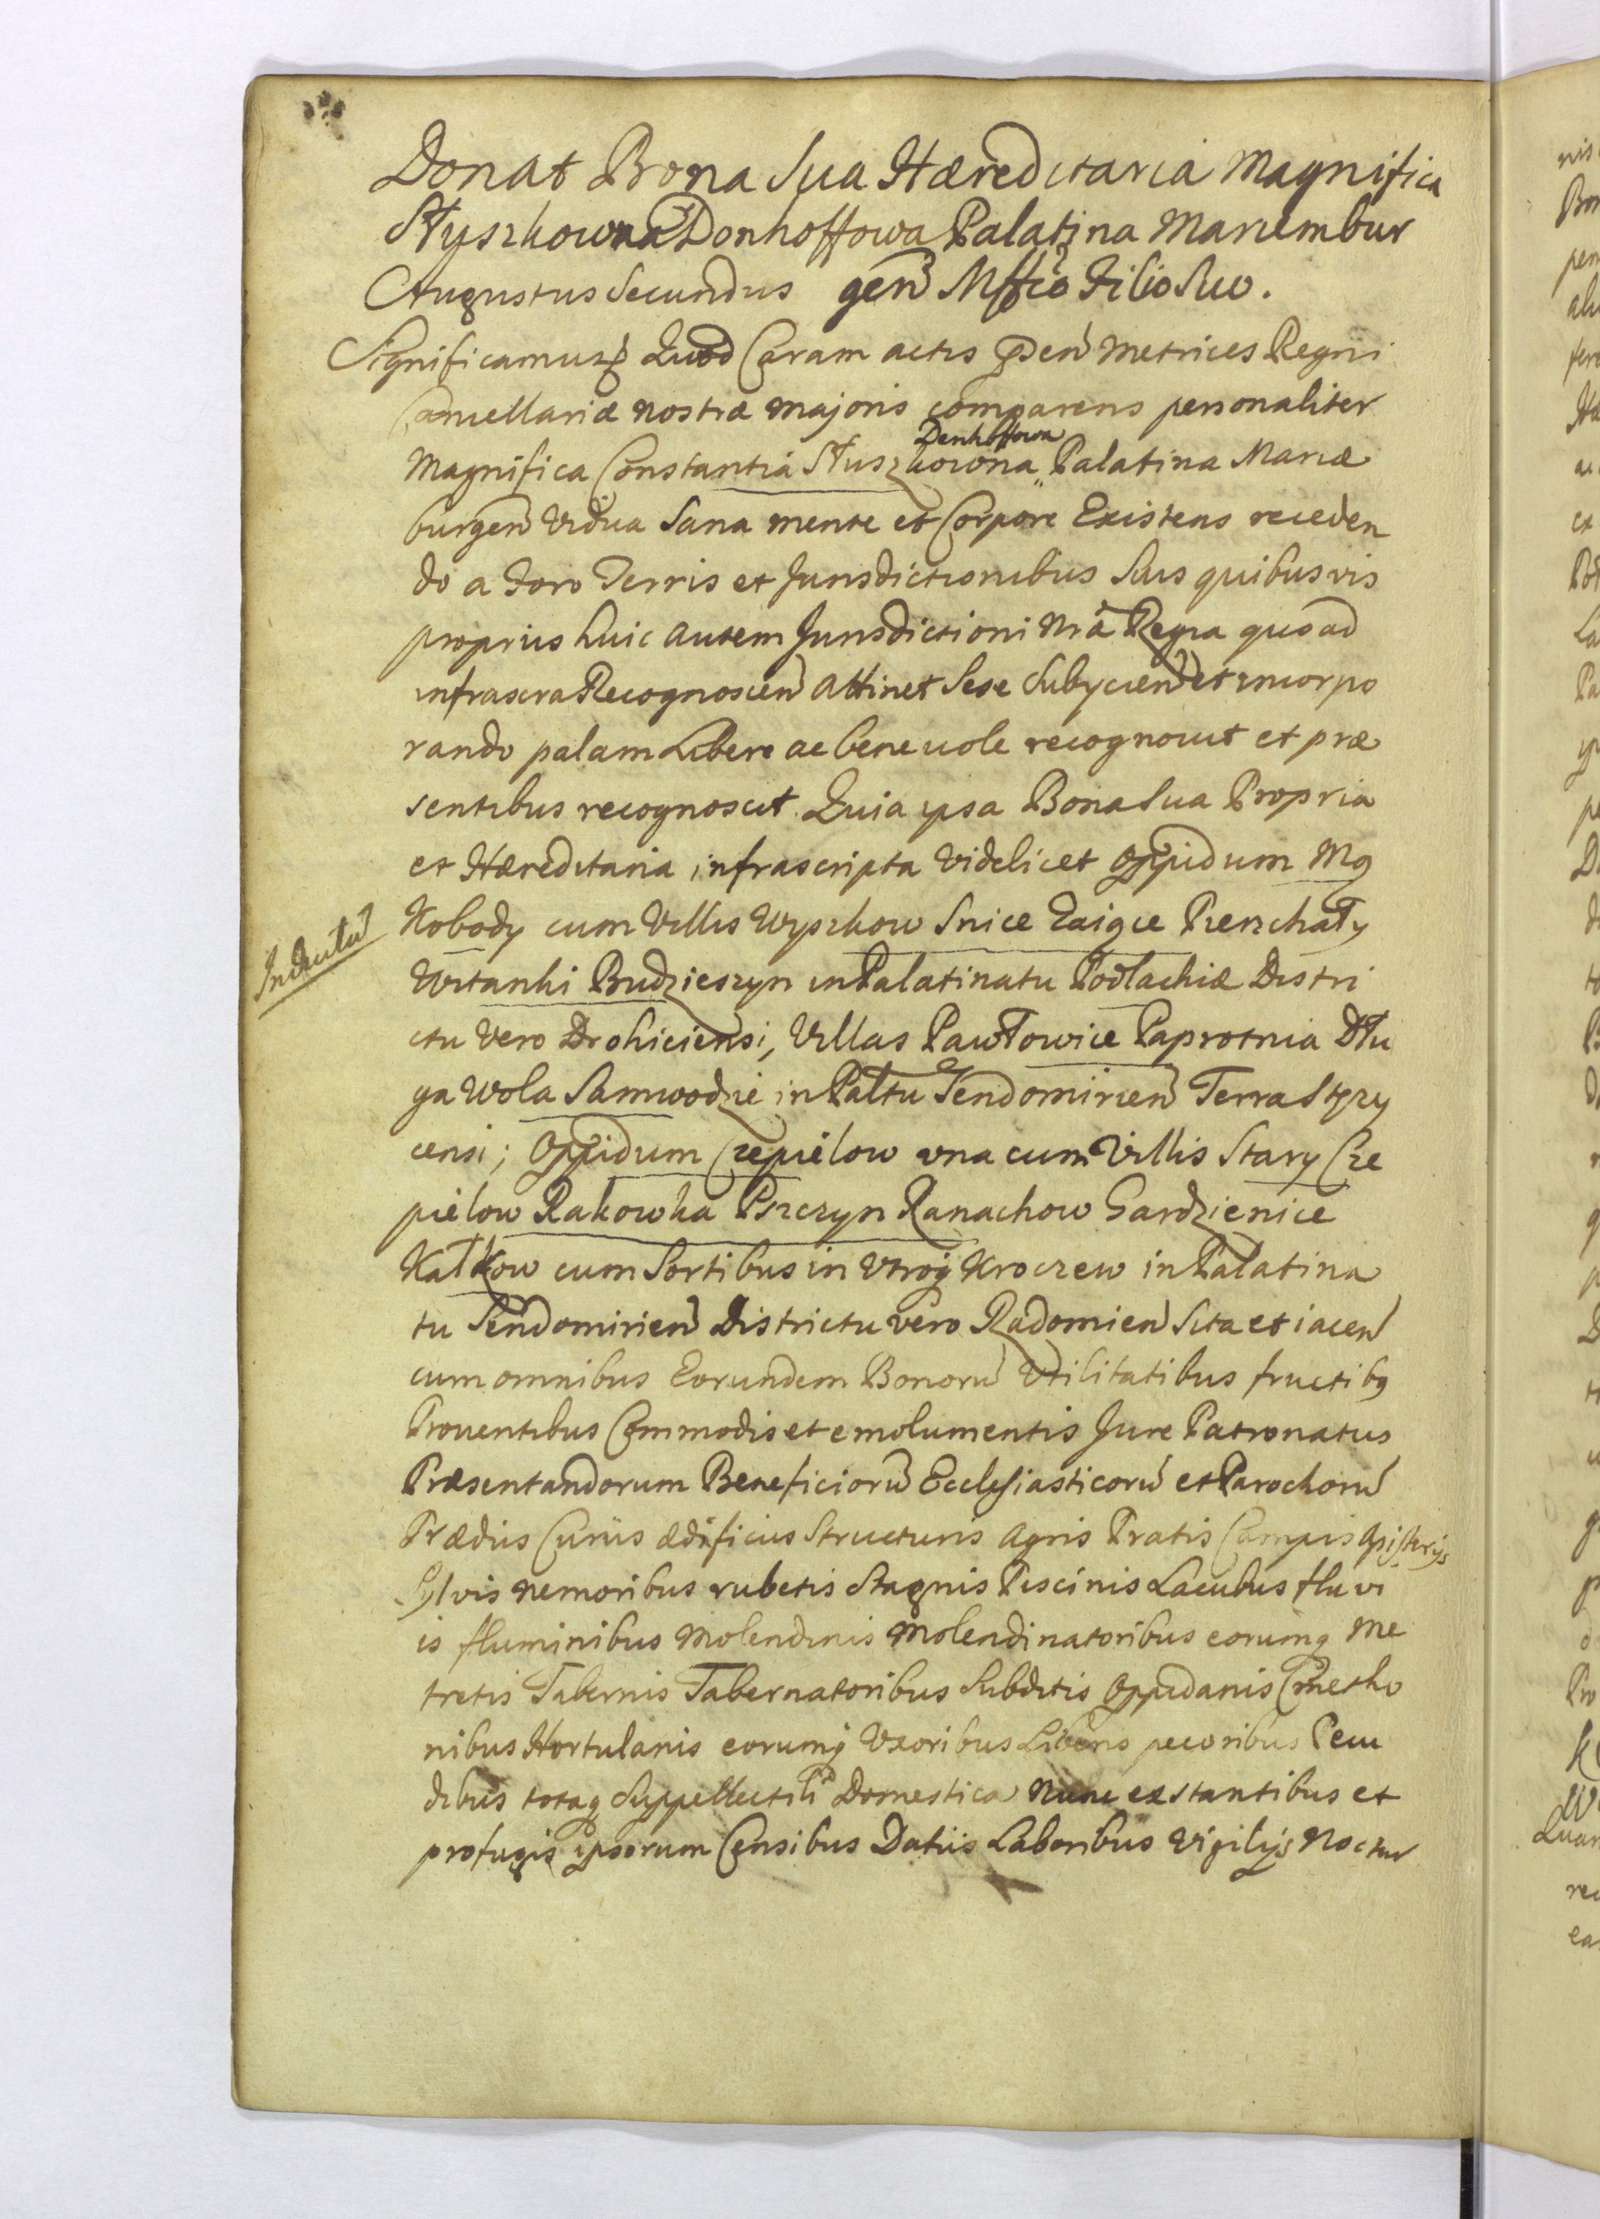 Donat Bona Sua Hæreditaria Magnifica
Słyszkowna Donhoffowa Palatina Mariembur
Augustus Secundus gen Mffco Filio Suo.
Significamus Quod Coram actis pden Metrices Regni
Cancellariæ nostræ majoris comparens personaliter
Denhoffowa
Magnifica Constantia Słuszkowna Palatina Mariæ
burgen Vidua Sana mente et Corpore Existens receden
do a Foro Terris et Jurisdictionibus Suis quibusvis
proprius huic autem Jurisdictioni Nrâ Regia quoad
infrascra Recognoscen Attinet Sese Subycien et incorpo
rando palam Libere ac benevole recognovit et præ
sentibus recognoscit Quia ipsa Bona Sua Propria
et Hæreditaria infrascripta Videlicet Oppidum Mo
Indultu
Kobody cum Villis Wyszkow Snice Zaigce Pierzchały
Witanki Budzieszyn in Palatinatu Podlachiæ Distri
ctu Vero Drohiciensi, Villas Pawłowice Paprotnia Dłu
ga Wola Samwodzie in Paltu Sendomirien Terra Stęzy
censi; Oppidum Czepielow una cum Villis Stary Cze
pielow Rakowka Pszczyn Kanachow Gardzienice
Kałkow cum Sortibus in Vtroq Kroczew in Palatina
tu Sendomirien Districtu vero Radomien Sita et iacen
cum omnibus Eorundem Bonoru Vtilitatibus fructibg
Proventibus Commodis et emolumentis Jure Patronatus
Præsentandorum Beneficioru Ecclesiasticoru et Parochoru
Prædiis Curiis ædificiis Structuris Agris Pratis Campis
Sylvis Nemoribus rubetis Stagnis Piscinis Lacubus fluvi
is fluminibus Molendinis Molendinatoribus eorumq Me
tretis Tabernis Tabernatoribus Subditis Oppidanis Cmetho
nibus Hortulanis eorumq Vxoribus Liberis pecoribus Pecu
dibus totaq Suppellectili Domestica Nunc exstantibus et
profugis ipsorum Censibus Datiis Laboribus Vigilijs Noctur